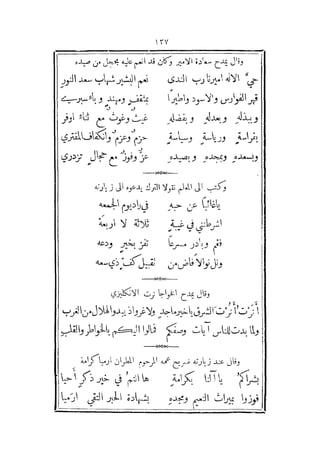 ١٣٧
وقال يمدح سعادة الامير وكان قد انعم عليه بحجل من صيده
حيَّ الاله اميرنا رب الندى نعم البشير شهاب سعد النور
قهر الفوارس والاسود واطيرًا بمثقفٍ ومهندٍ
وببذله وبعدله وبفضله غيثٌ وغوثٌ مع ثناء اوفر
بفراسةٍ ورياسةٍ وسياسةٍ حزمٌ وعزمٌ وانكفاف المفتري
وبسعده وبمجده وبصيده عزٌّ وفوزٌ مع حجالٍ تزدري
وكتب الى المعلم نقولا الترك يدعوه الى زيارته
ياغائبًا عن حبه في زاد يوم الجمعه
اشرطتني في غيبةٍ ثلاثة لا اربعة
فقم وبادر مسرعًا تفز بخيرٍ ودعه
ونل نوالًا فاض من تقبيل كفٍّ ذي سعه
وقال يمدح الخواجا نرت الانكليزي
أَنَرْتَ أَنَرْتَ الشرق ياخير ماجدٍ ولا غرو اذ يبدو الهلال من الغرب
ولما بدت للناس آيات وصفكم فمالوا اليكم بالخواطر والقلب
وقال عند زيارته ضريح عمه المرحوم المطران ارميا كرامة
بشراكمُ يا آلنا بكرامةٍ ها انتمُ في خير ذكرٍ أَحيا
فوزوا بميراث النعيم ومجده بشهادة الحبر التقي ارميا